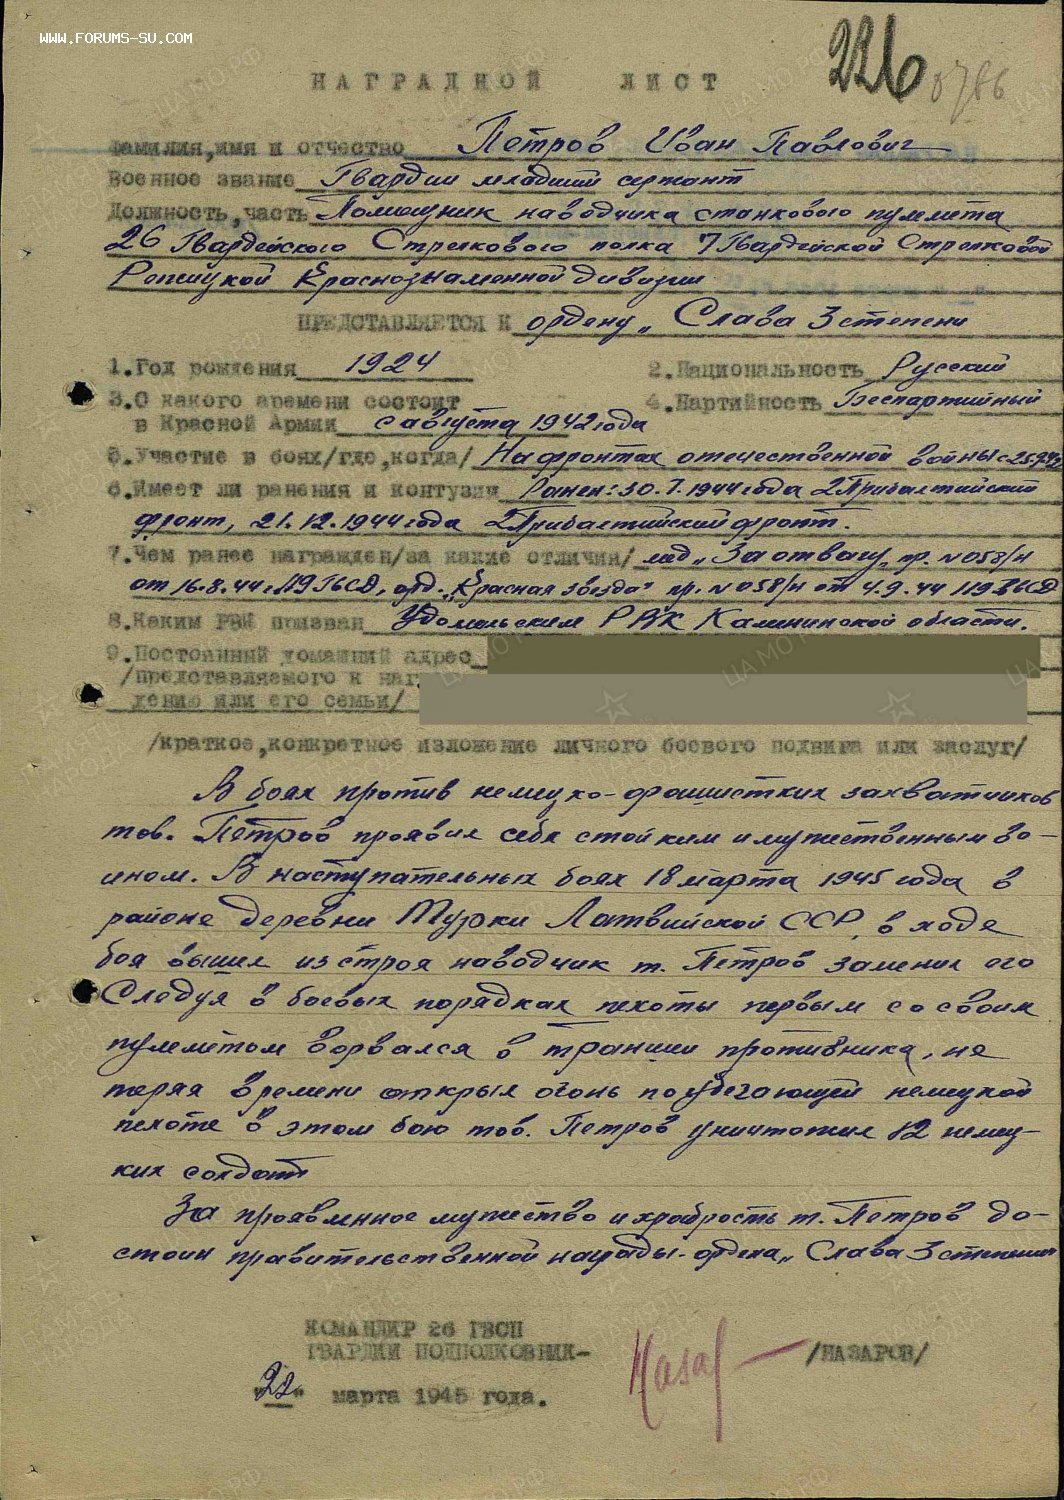 WWW.FORUMS-SU.COM
226
0786
НАГРАДНОЙ ЛИСТ
Фамилия, имя и отчество Петров Иван Павлович
Военное звание Гвардии младший сержант
Должность, часть Помощник наводчика станкового пулемета
26 Гвардейского Стрелкового полка 7 Гвардейской Стрелковой
Режицкой Краснознаменной дивизии
ПРЕДСТАВЛЯЕТСЯ К ордену „Слава 3 степени
1. Год рождения 1924 2. Национальность Русский
3. С какого времени состоит 4. Партийность Беспартийный
в Красной Армии с августа 1942 года
5. Участие в боях/где, когда/ На фронтах отечественной войны с
6. Имеет ли ранения и контузии Ранен: 30.7.1944 года 2 Прибалтийский
фронт, 21.12.1944 года 2 Прибалтийский фронт.
7. Чем ранее награжден/за какие отличия/ мед „За отвагу„ пр. N 058/н
от 16.8.44 г. 119 ГвСД, орд. „Красная звезда" пр. N 058/н от 4.9.44 119 ГвСД
8. Каким РВК призван Удомельским РВК Калининской области.
9. Постоянный домашний адрес
/представляемого к наг
дению или его семьи/
/краткое, конкретное изложение личного боевого подвига или заслуг/
В боях против немецко-фашистких захватчиков
тов. Петров проявил себя стойким и мужественным во-
ином. В наступательных боях 18 марта 1945 года в
районе деревни Турки Латвийской ССР, в ходе
боя вышел из строя наводчик т. Петров заменил его
Следуя в боевых порядках пехоты первым со своим
пулемётом ворвался в траншеи противника, не
теряя времени открыл огонь по убегающей немецкой
пехоте в этом бою тов. Петров уничтожил 12 немец-
ких солдат
За проявленное мужество и храбрость т. Петров до-
стоин правительственной награды-ордена „Слава 3 степени"
КОМАНДИР 26 ГВСП
ГВАРДИИ ПОДПОЛКОВНИК- /НАЗАРОВ/
"22" марта 1945 года.